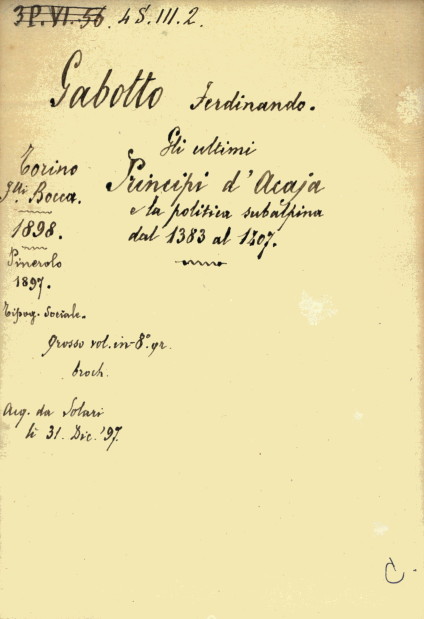 3 P. VI. 56. 4 S. III. 2.
Gabotto Ferdinando.
Gli ultimi
Principi d'Acaja
e la politica subalpina
dal 1383 al 1407.
Torino
F.lli Bocca.
1898.
Pinerolo
1897.
Tipog. Sociale.
grosso vol. in-8° gr.
broch.
Acq. da Solari
li 31. Dic. '97.
C.